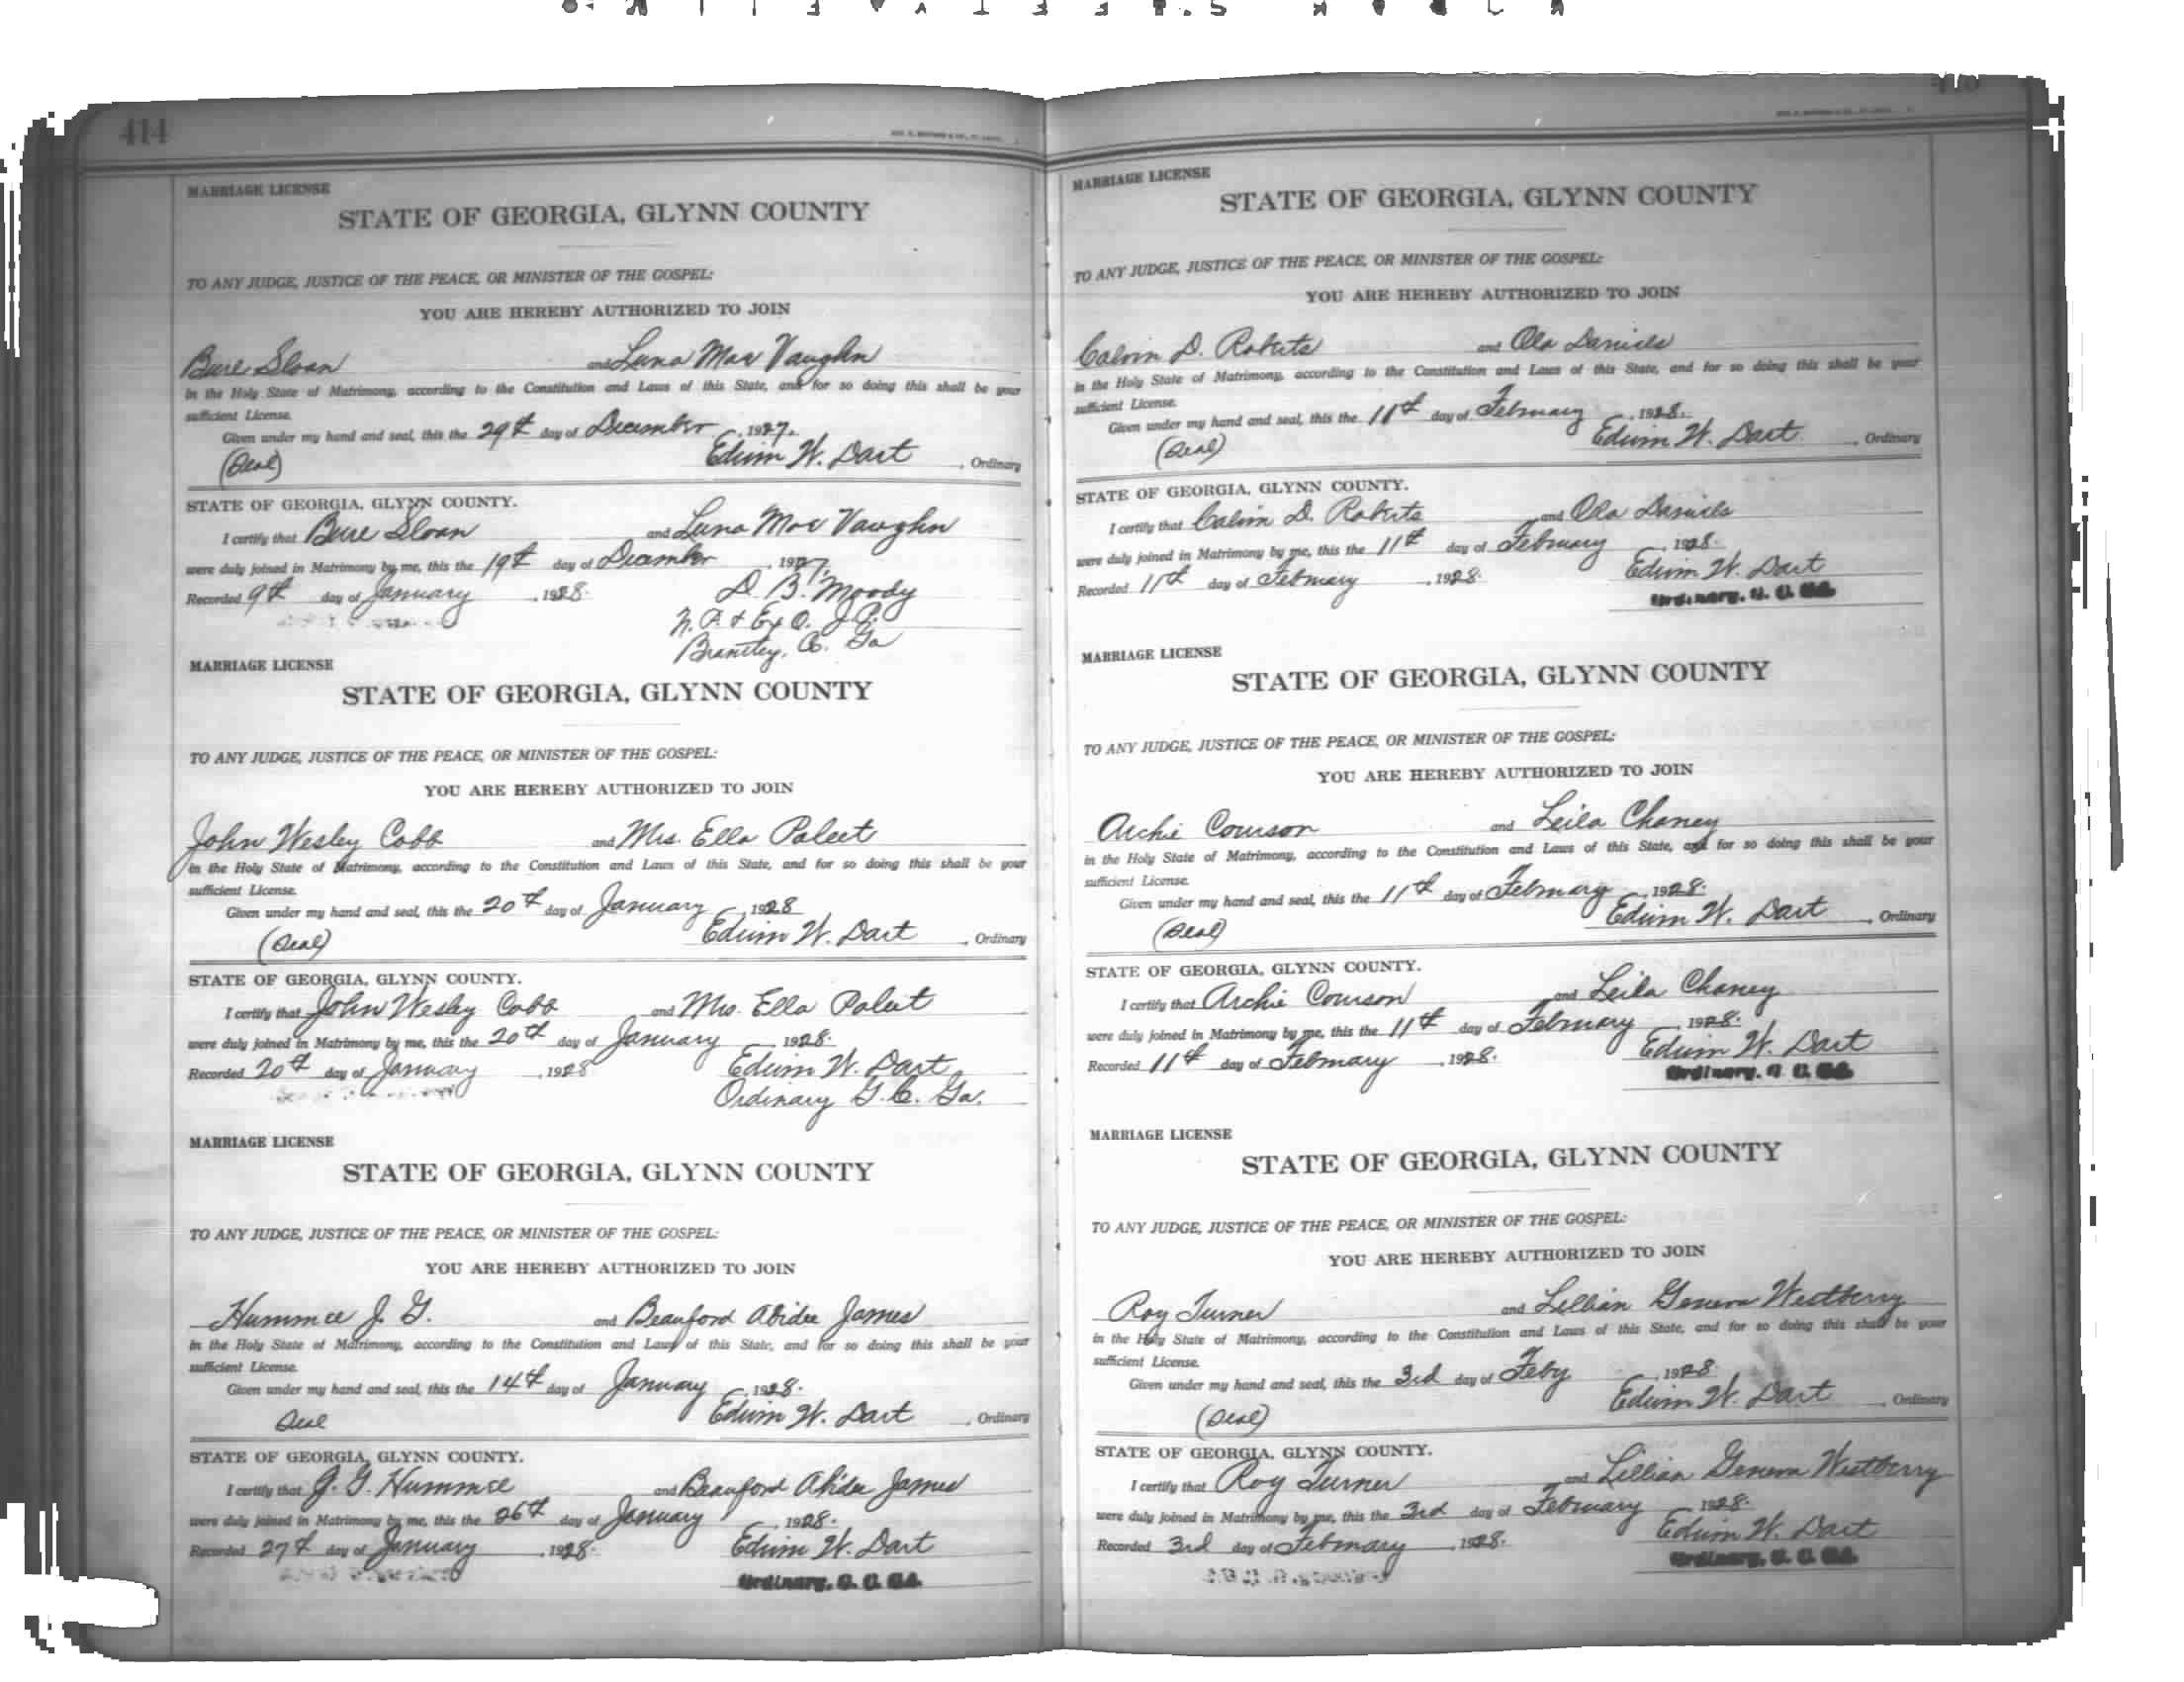 414
MARRIAGE LICENSE
STATE OF GEORGIA, GLYNN COUNTY
TO ANY JUDGE, JUSTICE OF THE PEACE, OR MINISTER OF THE GOSPEL:
YOU ARE HEREBY AUTHORIZED TO JOIN
Bure Sloan and Luna Mae Vaughn
in the Holy State of Matrimony, according to the Constitution and Laws of this State, and for so doing this shall be your
sufficient License.
Given under my hand and seal, this the 29th day of December, 1927.
(Seal) Edwin W. Dart, Ordinary
STATE OF GEORGIA, GLYNN COUNTY.
I certify that Bure Sloan and Luna Mae Vaughn
were duly joined in Matrimony by me, this the 19th day of December, 1927.
Recorded 9th day of January, 1928. D. B. Moody
N. P. & Ex O. J.P.
Brantley, Co. Ga
MARRIAGE LICENSE
STATE OF GEORGIA, GLYNN COUNTY
TO ANY JUDGE, JUSTICE OF THE PEACE, OR MINISTER OF THE GOSPEL:
YOU ARE HEREBY AUTHORIZED TO JOIN
John Wesley Cobb and Mrs. Ella Paleet
in the Holy State of Matrimony, according to the Constitution and Laws of this State, and for so doing this shall be your
sufficient License.
Given under my hand and seal, this the 20th day of January, 1928
(Seal) Edwin W. Dart, Ordinary
STATE OF GEORGIA, GLYNN COUNTY.
I certify that John Wesley Cobb and Mrs. Ella Paleet
were duly joined in Matrimony by me, this the 20th day of January, 1928.
Recorded 20th day of January, 1928 Edwin W. Dart
Ordinary G. C. Ga.
MARRIAGE LICENSE
STATE OF GEORGIA, GLYNN COUNTY
TO ANY JUDGE, JUSTICE OF THE PEACE, OR MINISTER OF THE GOSPEL:
YOU ARE HEREBY AUTHORIZED TO JOIN
Hummce J. G. and Beauford Abidee James
in the Holy State of Matrimony, according to the Constitution and Laws of this State, and for so doing this shall be your
sufficient License.
Given under my hand and seal, this the 14th day of January, 1928.
Seal Edwin W. Dart, Ordinary
STATE OF GEORGIA, GLYNN COUNTY.
I certify that J. G. Hummce and Beauford Abidee James
were duly joined in Matrimony by me, this the 26th day of January, 1928.
Recorded 27th day of January, 1928. Edwin W. Dart
Ordinary, G. C. GA.
MARRIAGE LICENSE
STATE OF GEORGIA, GLYNN COUNTY
TO ANY JUDGE, JUSTICE OF THE PEACE, OR MINISTER OF THE GOSPEL:
YOU ARE HEREBY AUTHORIZED TO JOIN
Calvin D. Roberts and Ola Daniels
in the Holy State of Matrimony, according to the Constitution and Laws of this State, and for so doing this shall be your
sufficient License.
Given under my hand and seal, this the 11th day of February, 1928.
(Seal) Edwin W. Dart, Ordinary
STATE OF GEORGIA, GLYNN COUNTY.
I certify that Calvin D. Roberts and Ola Daniels
were duly joined in Matrimony by me, this the 11th day of February, 1928.
Recorded 11th day of February, 1928. Edwin W. Dart
Ordinary, G. C. GA.
MARRIAGE LICENSE
STATE OF GEORGIA, GLYNN COUNTY
TO ANY JUDGE, JUSTICE OF THE PEACE, OR MINISTER OF THE GOSPEL:
YOU ARE HEREBY AUTHORIZED TO JOIN
Archie Courson and Leila Chaney
in the Holy State of Matrimony, according to the Constitution and Laws of this State, and for so doing this shall be your
sufficient License.
Given under my hand and seal, this the 11th day of February, 1928.
(Seal) Edwin W. Dart, Ordinary
STATE OF GEORGIA, GLYNN COUNTY.
I certify that Archie Courson and Leila Chaney
were duly joined in Matrimony by me, this the 11th day of February, 1928.
Recorded 11th day of February, 1928. Edwin W. Dart
Ordinary, G. C. GA.
MARRIAGE LICENSE
STATE OF GEORGIA, GLYNN COUNTY
TO ANY JUDGE, JUSTICE OF THE PEACE, OR MINISTER OF THE GOSPEL:
YOU ARE HEREBY AUTHORIZED TO JOIN
Roy Turner and Lillian Geneva Westberry
in the Holy State of Matrimony, according to the Constitution and Laws of this State, and for so doing this shall be your
sufficient License.
Given under my hand and seal, this the 3rd day of Feby, 1928
(Seal) Edwin W. Dart, Ordinary
STATE OF GEORGIA, GLYNN COUNTY.
I certify that Roy Turner and Lillian Geneva Westberry
were duly joined in Matrimony by me, this the 3rd day of February, 1928.
Recorded 3rd day of February, 1928. Edwin W. Dart
Ordinary, G. C. GA.